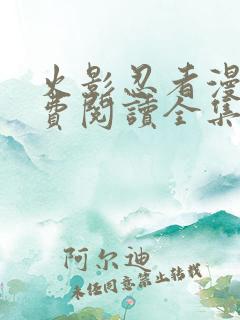 火影忍者漫
費閱讀全集
阿尔迪
未经同意禁止转载